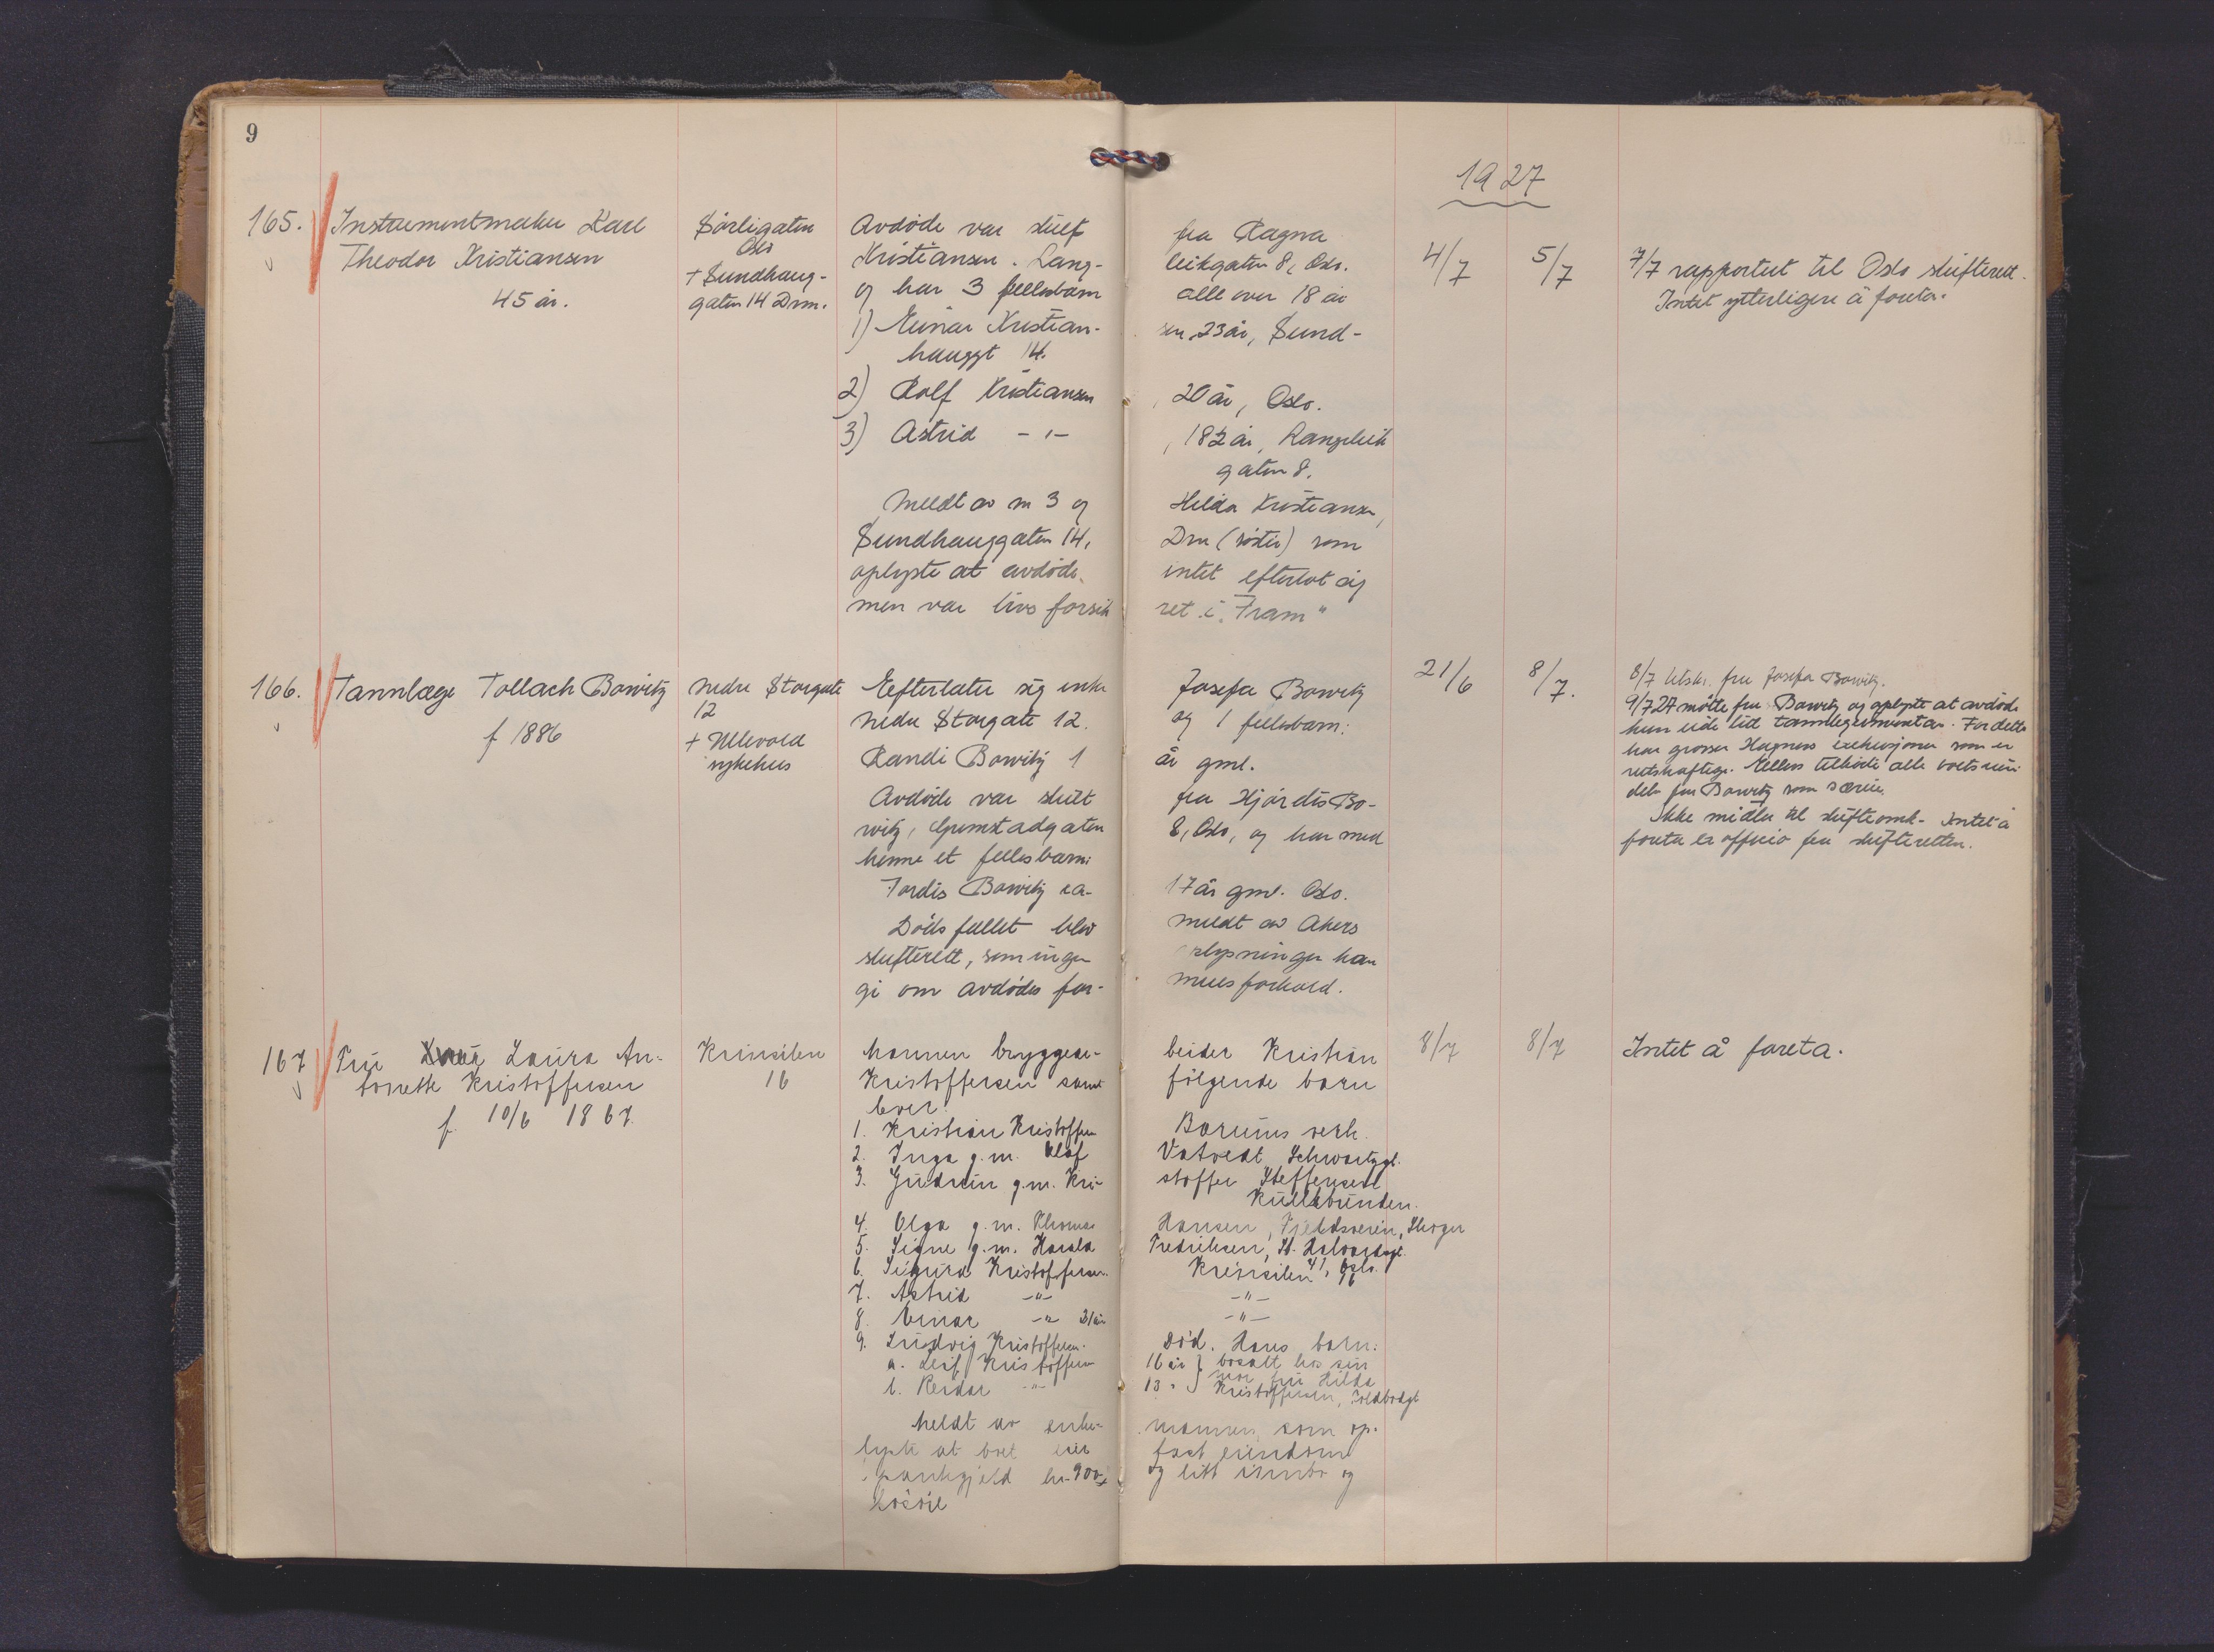 9
1927
165. Instrumentmaker Karl
Theodor Kristiansen
45 år.
Sørligaten
Oslo
+ Sundhaug-
gaten 14 Drm.
Avdøde var skilt fra Ragna
Kristiansen. Lang- leikgaten 8, Oslo.
og har 3 fellesbarn alle over 18 år
1) Einar Kristian- sen, 23 år, Sund-
hauggt 14.
2) Rolf Kristiansen, 20 år, Oslo.
3) Astrid -"-, 18½ år, Langleik
gaten 8.
Meldt av nr 3 og Hilda Kristiansen,
Sundhauggaten 14, Drm (søster) som
oplyste at avdøde intet efterlot sig
men var livsforsik ret i "Fram"
4/7
5/7
7/7 rapportert til Oslo skifterett.
Intet ytterligere å foreta.
166. Tannlæge Tollach Bowitz
f 1886
Nedre Storgate
12
+ Ullevold
sykehus
Efterlater sig enke Josefa Bowitz
Nedre Storgate 12. og 1 fellesbarn:
Randi Bowitz 1 år gml.
Avdøde var skilt fra Hjørdis Bo-
witz, Grimstadgaten 8, Oslo, og har med
henne et fellesbarn:
Tordis Bowitz ca- 17 år gml. Oslo.
Dødsfallet blev meldt av Akers
skifterett, som ingen oplysninger kan
gi om avdødes for- muesforhold.
21/6
8/7.
8/7 Utskr. fru Josefa Bowitz.
9/7 27 møtte fru Bowitz og oplyste at avdøde
kun eide litt tannlegeinventar. For dette
har grosser eksekusjoner som er
rettskraftige. Ellers tilhørte alle boets
deler fru Bowitz som særeie.
Ikke midler til skifteomk. Intet å
foreta ex officio fra skifteretten.
167 Fru Laura An-
tonette Kristoffersen
f. 10/6 1867.
Kreinsilen
16
Mannen bryggear- beider Kristian
Kristoffersen samt følgende barn
lever:
1. Kristian Kristoffersen Bærums verk.
2. Inga g.m. Olaf Vatvedt Schwartzgt.
3. Gudrun g.m. Kri- stoffer Steffensen
Kullebunden.
4. Olga g.m. Thomas Hansen, Fjeldsveien, Skoger
5. Signe g.m. Harald Fredriksen, St. Halvardsgt.
41, Oslo.
6. Sigurd Kristoffersen Kreinsilen 16
7. Astrid -"- -"-
8. Einar -"- 31 år -"-
9. Ludvig Kristoffersen død. Hans barn:
a. Leif Kristoffersen 16 år } bosatt hos sin
b. Reidar -"- 13 " } mor fru Hilda
Kristoffersen, Toldbodgt
Meldt av enke- mannen, som op-
lyste at boet eier fast eiendom
pantegjeld kr. 900,- og litt innbo og
løsøre
8/7
8/7
Intet å foreta.